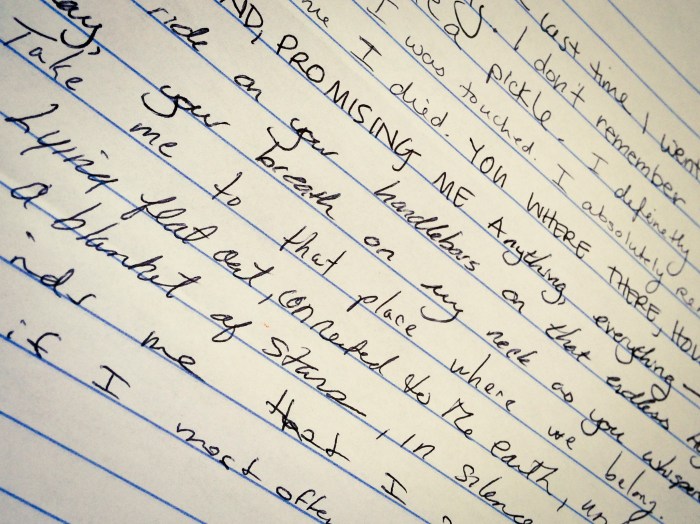 last time I went
I don't remember
a pickle. I definetly
I was touched. I absolutely re
me I died. YOU WHERE THERE, HOL
ND, PROMISING ME Anything, everything —
ride on your handlebars on that endless
ay, your breath on my neck as you whisper
Take me to that place where we belong.
Lying flat out, connected to the earth, un
a blanket of stars, in silence
inds me that I
if I most often